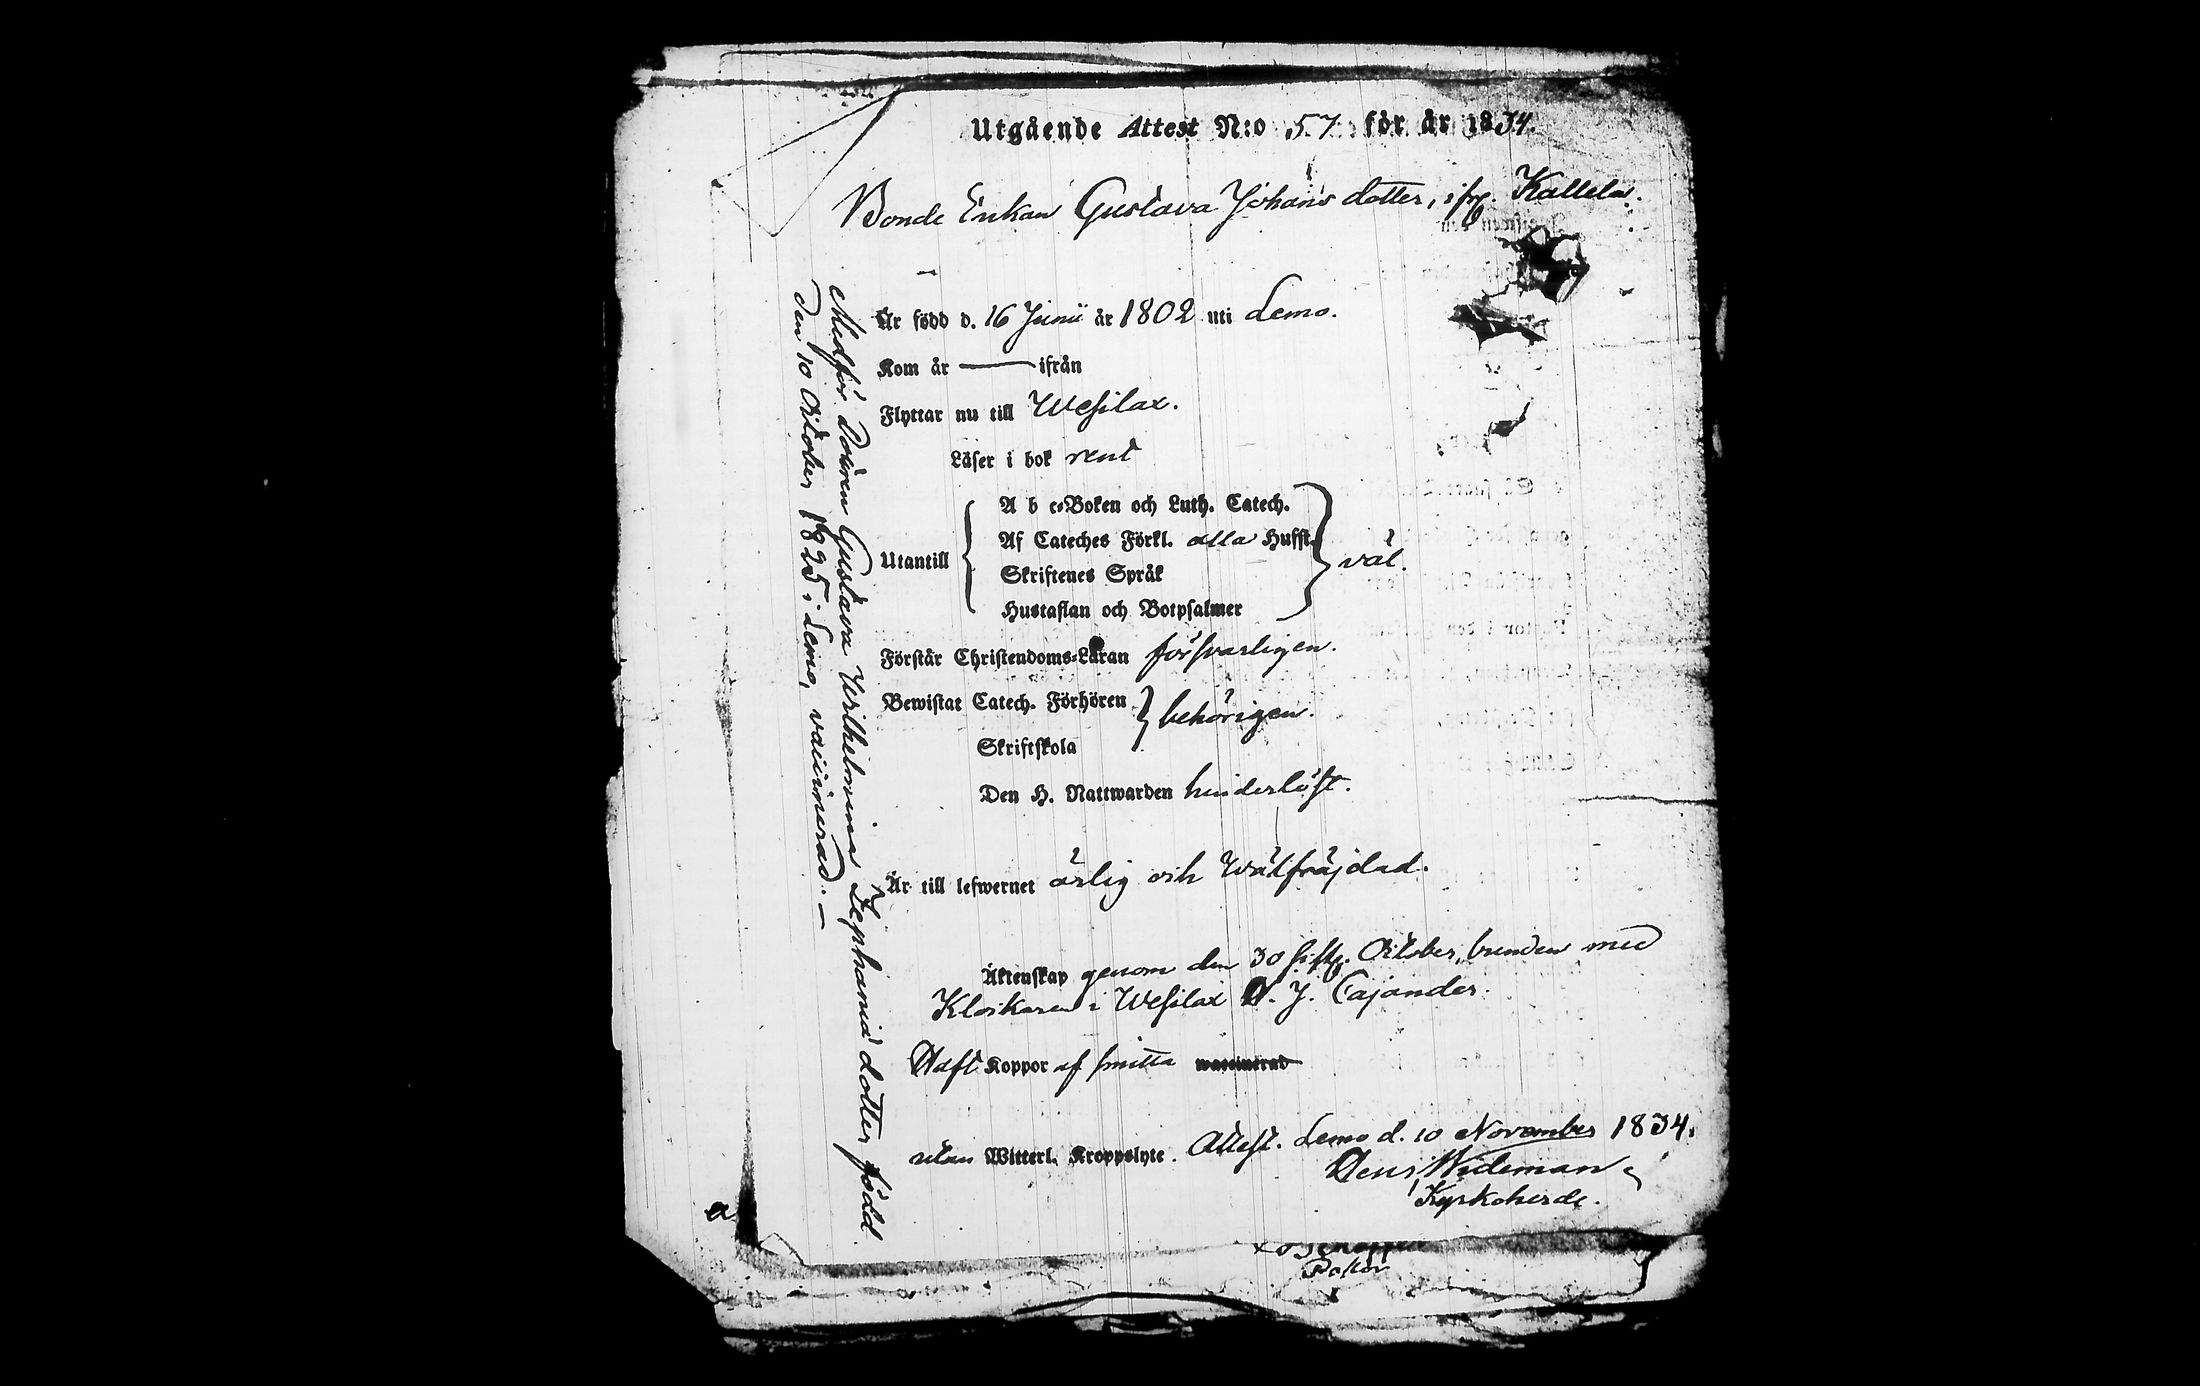 Utgående Attest N:o 57 för år 1834.
Bonde Enkan Gustava Johansdotter, ifrån Kallela.
Är född d. 16 Junii år 1802 uti Lemo.
Kom år — ifrån
Flyttar nu till Wesilax.
Läser i bok rent
Utantill
A b c-Boken och Luth. Catech.
Af Cateches Förkl. alla Hufst.
Skriftenes Språk
Hustaflan och Botpsalmer
väl.
Förstår Christendoms-Läran försvarligen.
Bewistat Catech. Förhören
Skriftskola
behörigen.
Den H. Nattwarden hinderlöst.
Är till lefwernet ärlig och wälfräjdad.
Äktenskap genom den 30 October, bunden med
Klockaren i Wesilax J. Cajander.
Haft Koppor af smitta waccinerad
utan Witterl. Kroppslyte. Attest. Lemo d. 10 November 1834.
Wideman
Kyrkoherde.
Pastor
Medför Dottren Gustava Wilhelmina Zephaniædotter född
den 10 October 1825 i Lemo, vaccinerad. —